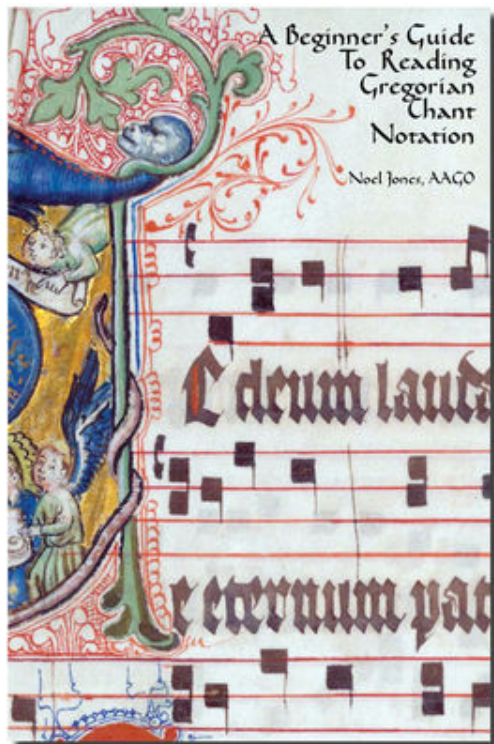 A Beginner's Guide
To Reading
Gregorian
Chant
Notation
Noel Jones, AAGO
E deum lauda
e eternum pat